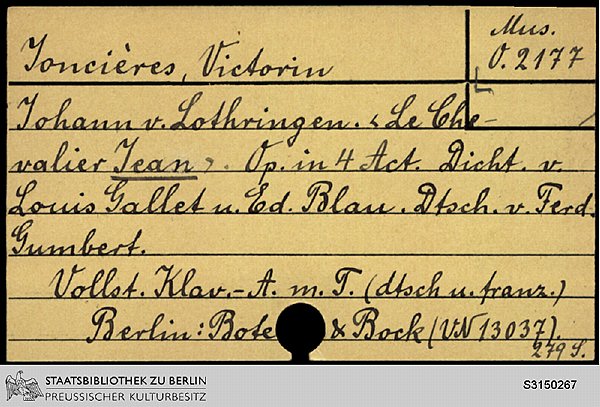 Mus.
O. 2177
Joncières, Victorin
Johann v. Lothringen. < Le Che-
valier Jean >. Op. in 4 Act. Dicht. v.
Louis Gallet u. Ed. Blau. Dtsch. v. Ferd.
Gumbert.
Vollst. Klav.-A. m. T. (dtsch u. franz.)
Berlin: Bote & Bock (VN 13037).
279 S.
STAATSBIBLIOTHEK ZU BERLIN
PREUSSISCHER KULTURBESITZ
S3150267